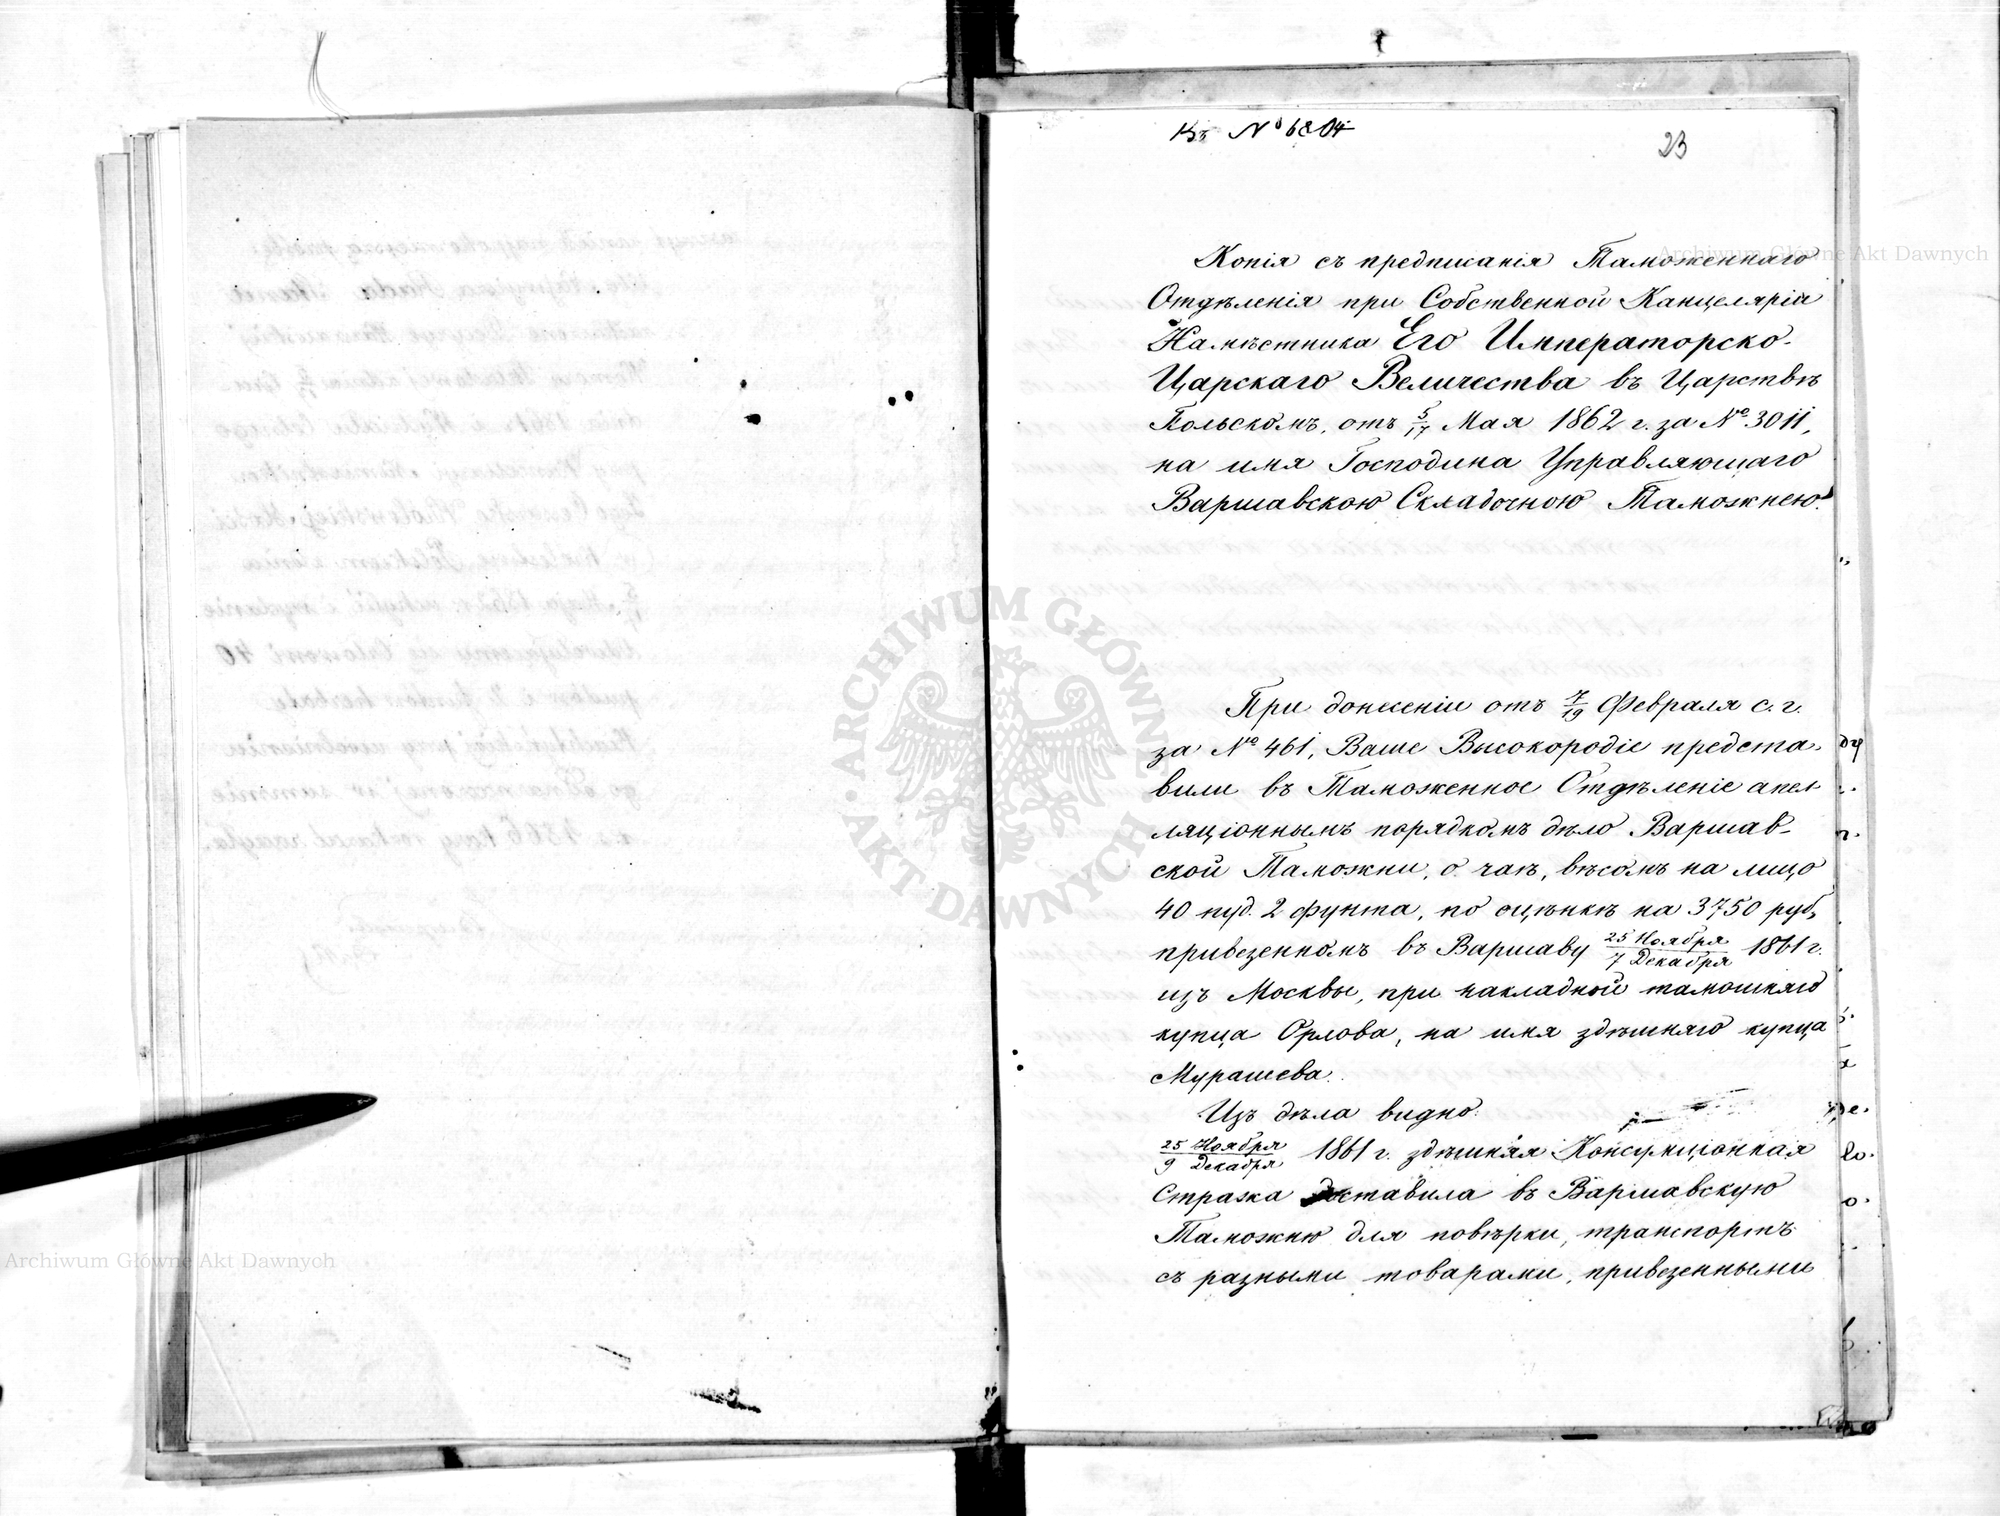 Къ № 6804
23
Копія съ предписанія Таможеннаго
Отдѣленія при Собственной Канцеляріи
Намѣстника Его Императорско-
Царскаго Величества въ Царствѣ
Польскомъ, отъ 5/17 Мая 1862 г. за № 3011,
на имя Господина Управляющаго
Варшавскою Складочною Таможнею.
При донесеніи отъ 7/19 Февраля с. г.
за № 461, Ваше Высокородіе предста-
вили въ Таможенное Отдѣленіе апел-
ляціоннымъ порядкомъ дѣло Варшав-
ской Таможни, о чаѣ, вѣсомъ на лицо
40 пуд. 2 фунта, по оцѣнкѣ на 3750 руб.,
привезенномъ въ Варшаву 25 Ноября/7 Декабря 1861 г.
изъ Москвы, при накладной тамошняго
купца Орлова, на имя здѣшняго купца
Мурашева.
Изъ дѣла видно:
25 Ноября/9 Декабря 1861 г. здѣшняя Консумціонная
Стража доставила въ Варшавскую
Таможню для повѣрки, транспортъ
съ разными товарами, привезенными
ARCHIWUM GŁÓWNE AKT DAWNYCH
Archiwum Główne Akt Dawnych
Archiwum Główne Akt Dawnych